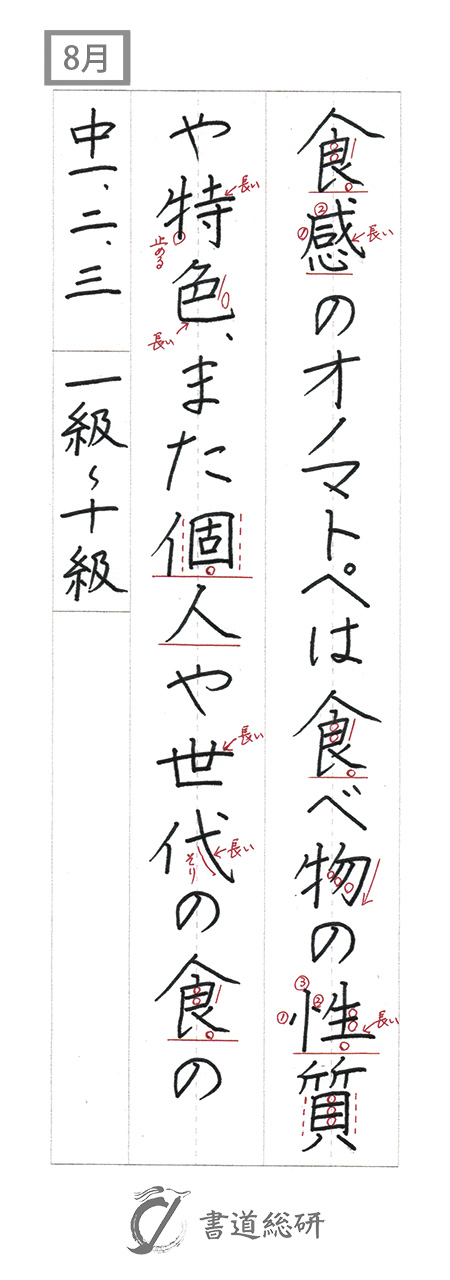 8月
食感のオノマトペは食べ物の性質
や特色、また個人や世代の食の
中一、二、三 一級〜十級
① ② 長い
③ ① ② 長い
長い ① 止める
長い
長い
長い そり
書道総研